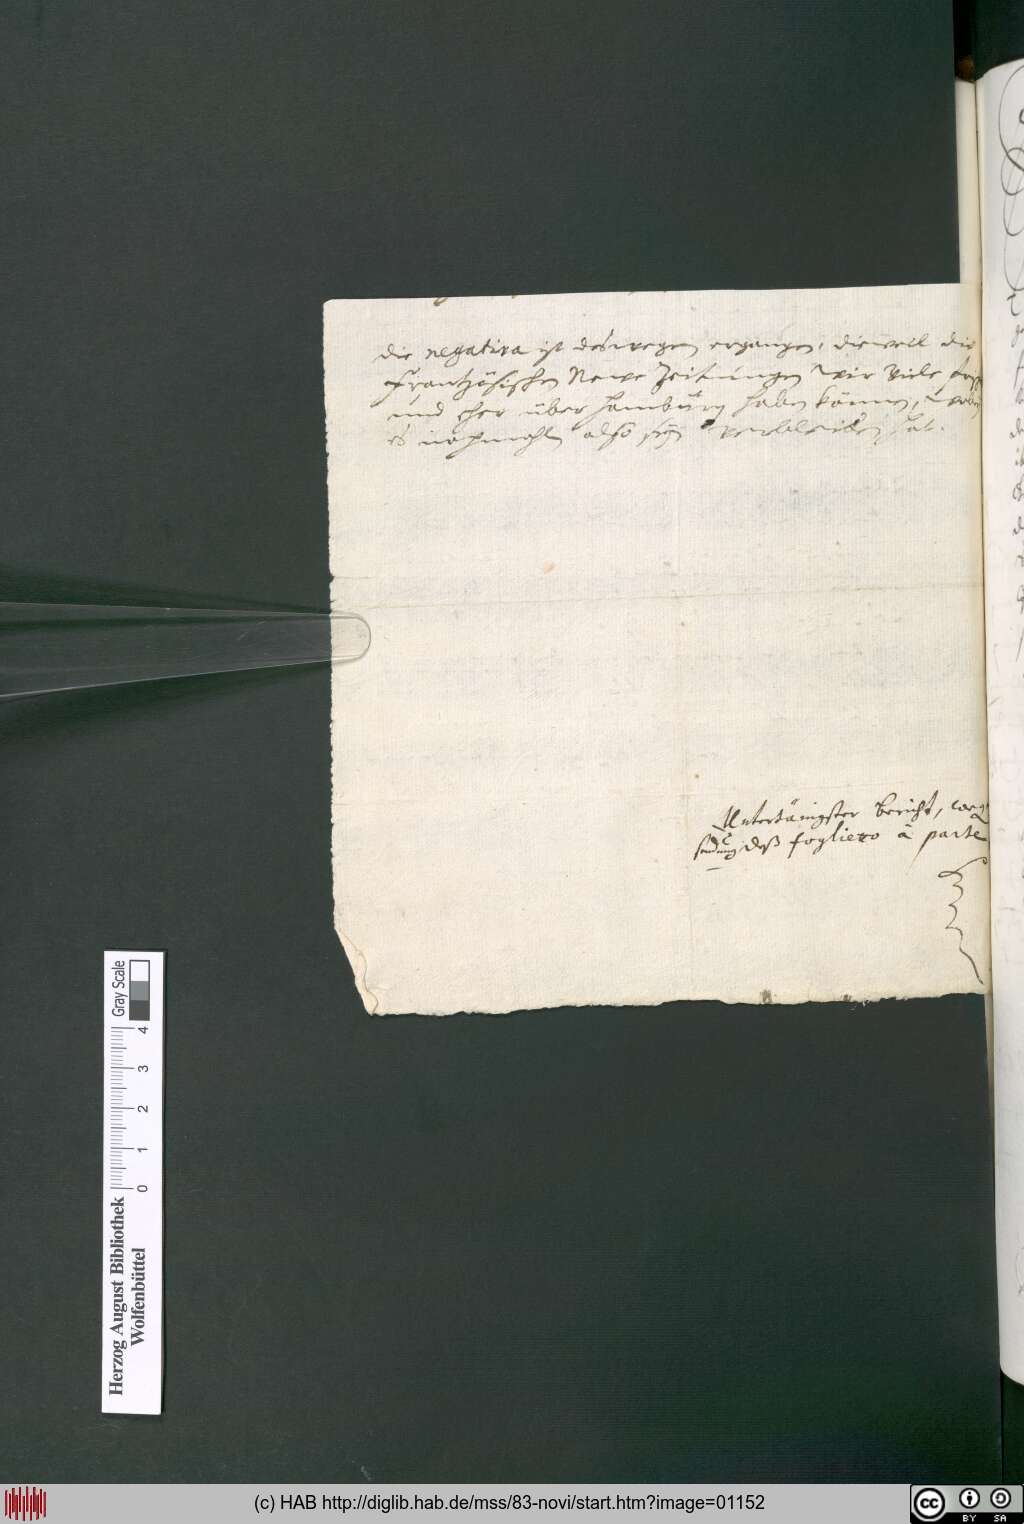 die negativa ist deswegen ergangen, dieweil die
Frantzösischen Newe Zeitungen wir viele
und eher über Hamburg haben können,
es nochmahln also sein verbleiben hat.
Untertänigster bericht,
sendung deß foglietto à parte
Gray Scale
4
3
2
1
0
Herzog August Bibliothek
Wolfenbüttel
(c) HAB http://diglib.hab.de/mss/83-novi/start.htm?image=01152
cc
BY SA